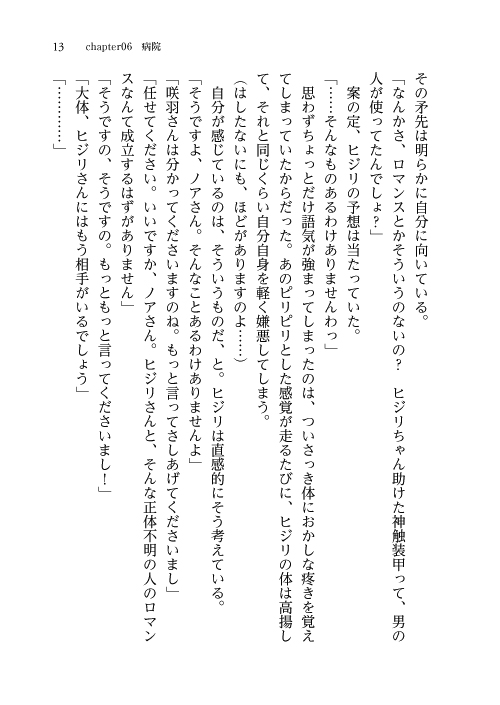 13 chapter06 病院
その矛先は明らかに自分に向いている。
「なんかさ、ロマンスとかそういうのないの？　ヒジリちゃん助けた神触装甲って、男の
人が使ってたんでしょ？」
案の定、ヒジリの予想は当たっていた。
「……そんなものあるわけありませんわっ」
思わずちょっとだけ語気が強まってしまったのは、ついさっき体におかしな疼きを覚え
てしまっていたからだった。あのピリピリとした感覚が走るたびに、ヒジリの体は高揚し
て、それと同じくらい自分自身を軽く嫌悪してしまう。
（はしたないにも、ほどがありますのよ……）
自分が感じているのは、そういうものだ、と。ヒジリは直感的にそう考えている。
「そうですよ、ノアさん。そんなことあるわけありませんよ」
「咲羽さんは分かってくださいますのね。もっと言ってさしあげてくださいまし」
「任せてください。いいですか、ノアさん。ヒジリさんと、そんな正体不明の人のロマン
スなんて成立するはずがありません」
「そうですの、そうですの。もっともっと言ってくださいまし！」
「大体、ヒジリさんにはもう相手がいるでしょう」
「…………」